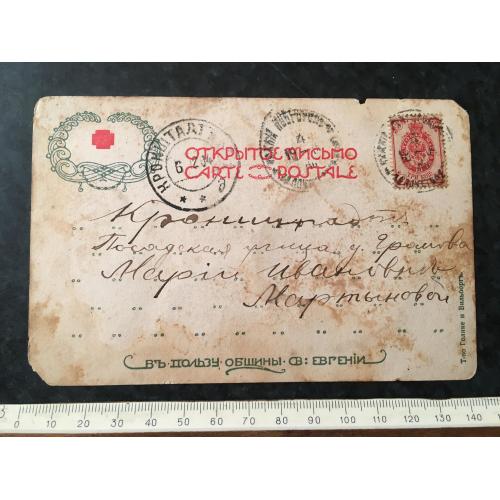 ОТКРЫТОЕ ПИСЬМО
CARTE POSTALE
КРОНШТАДТ
6
Кронштадтъ
Посадская улица д. Громова
Маріи Ивановнѣ
Мартыновой
Т-во Голике и Вильборгъ.
ВЪ ПОЛЬЗУ ОБЩИНЫ СВ: ЕВГЕНІИ
10 20 30 40 50 60 70 80 90 100 110 120 130 140